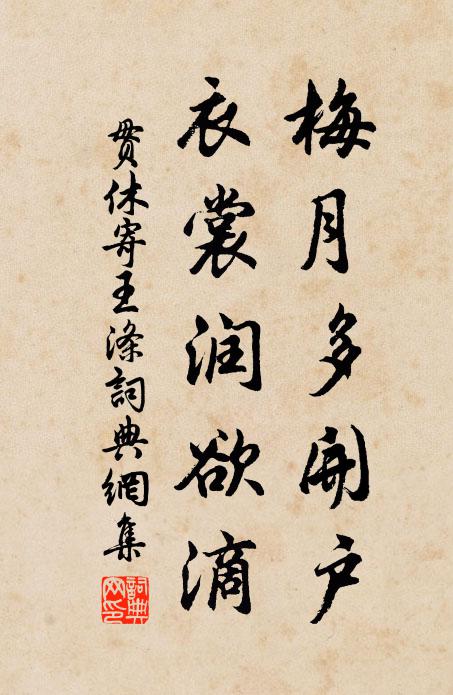 梅月多開户
衣裳润欲滴
贯休寄王滌詞典網集
詞典網印